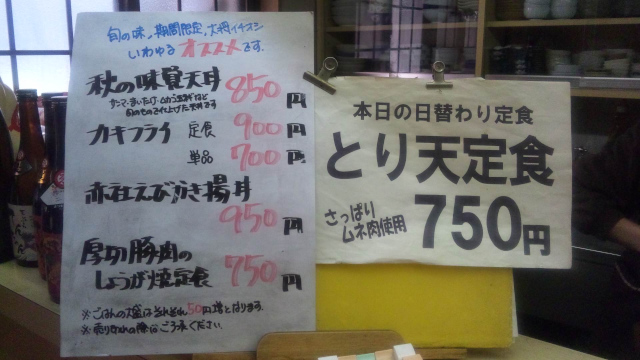 旬の味、期間限定、大将イチオシ
いわゆるオススメです。
秋の味覚天丼 850円
旬のもので仕上げた天丼です
カキフライ 定食 900円
単品 700円
赤社えびかき揚丼
950円
厚切豚肉の
しょうが焼定食 750円
※ごはんの大盛はそれぞれ50円増となります。
※売り切れの際はご了承ください。
本日の日替わり定食
とり天定食
さっぱり
ムネ肉使用
750円